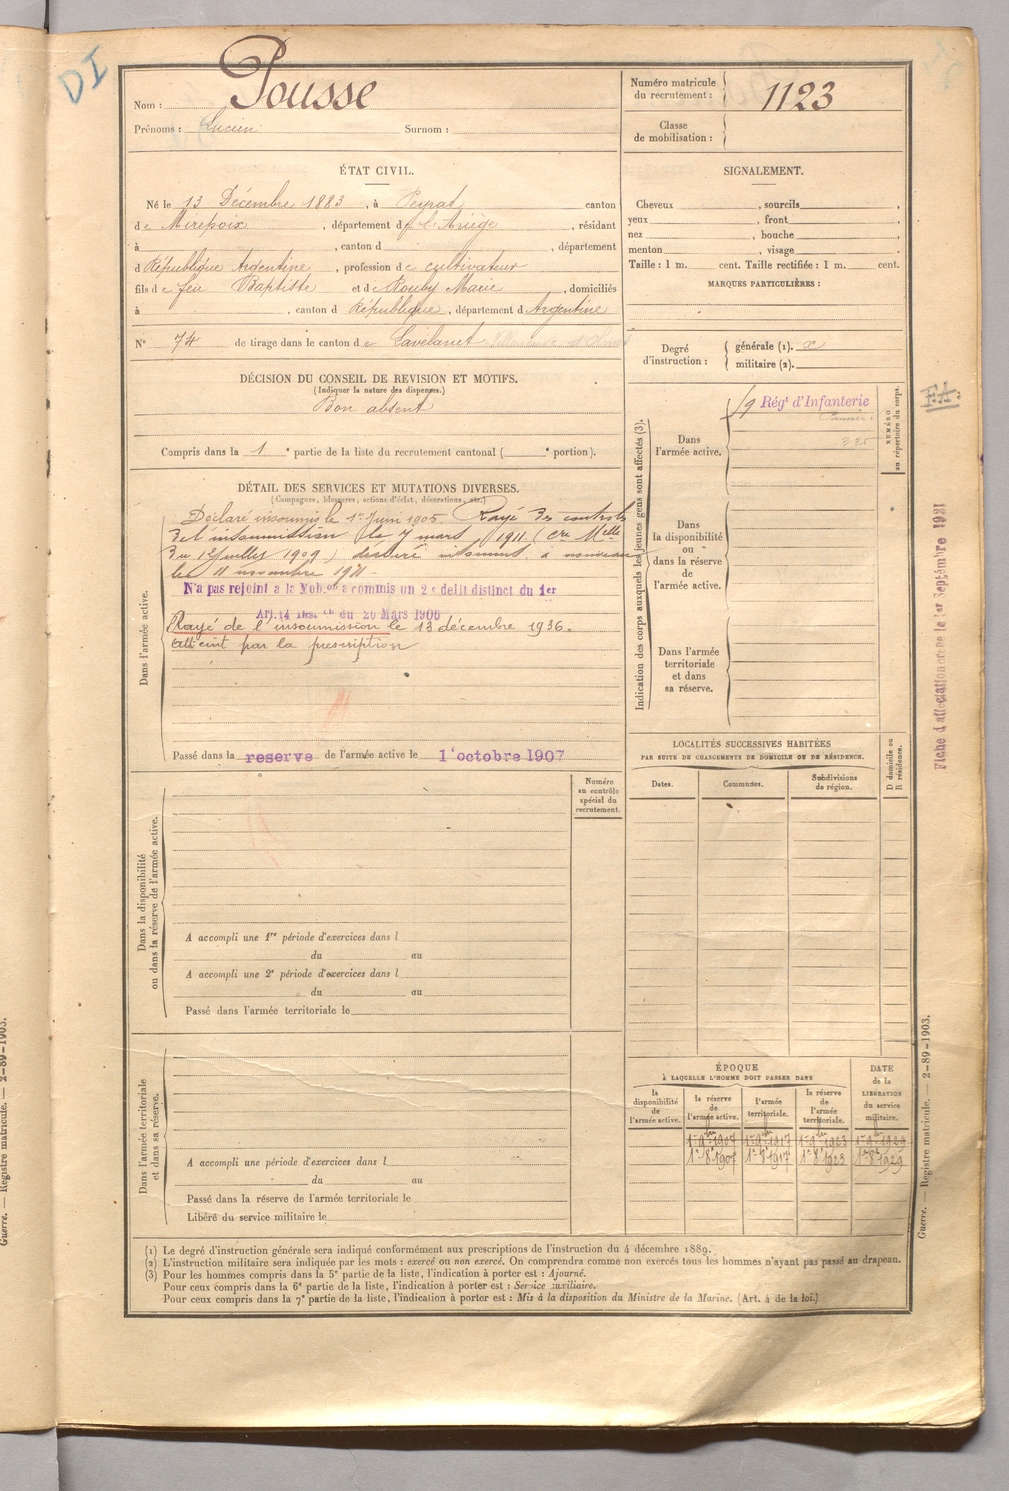 DI
Nom : Pousse
Prénoms : Lucien Surnom :
Numéro matricule du recrutement : 1123
Classe de mobilisation :
ÉTAT CIVIL.
Né le 13 Décembre 1883, à Peyrat canton
de Mirepoix, département de l'Ariège, résidant
à , canton d , département
d République Argentine, profession de cultivateur
fils de feu Baptiste et de Rouby Marie, domiciliés
à , canton d République, département d Argentine
N° 74 de tirage dans le canton de Lavelanet
SIGNALEMENT.
Cheveux , sourcils ,
yeux , front ,
nez , bouche ,
menton , visage .
Taille : 1 m. cent. Taille rectifiée : 1 m. cent.
MARQUES PARTICULIÈRES :
Degré d'instruction : générale (1). x
militaire (2).
DÉCISION DU CONSEIL DE REVISION ET MOTIFS.
(Indiquer la nature des dispenses.)
Bon absent
Compris dans la 1e partie de la liste du recrutement cantonal ( e portion).
DÉTAIL DES SERVICES ET MUTATIONS DIVERSES.
(Campagnes, blessures, actions d'éclat, décorations, etc.)
Dans l'armée active.
Déclaré insoumis le 1er Juin 1905. Rayé des controles
de l'insoumission le 7 mars 1911 (cre Mlle
du 12 Juillet 1909) déclaré insoumis à nouveau
le 11 novembre 1911
N'a pas rejoint a la Mob.on a commis un 2e delit distinct du 1er
Art. 14 Inst.on du 20 Mars 1906
Rayé de l'insoumission le 13 décembre 1936.
atteint par la prescription
Passé dans la reserve de l'armée active le 1er octobre 1907
Indication des corps auxquels les jeunes gens sont affectés (3).
Dans l'armée active.
59 Régt d'Infanterie
Pamiers
325
Dans la disponibilité ou dans la réserve de l'armée active.
Dans l'armée territoriale et dans sa réserve.
NUMÉRO au répertoire du corps.
F.A.
Fiche d'affectation créée le 1er Septembre 1931
LOCALITÉS SUCCESSIVES HABITÉES
PAR SUITE DE CHANGEMENTS DE DOMICILE OU DE RÉSIDENCE.
Dates. Communes. Subdivisions de région.
D domicile ou R résidence.
Numéro au contrôle spécial du recrutement.
Dans la disponibilité ou dans la réserve de l'armée active.
A accompli une 1re période d'exercices dans l
du au
A accompli une 2e période d'exercices dans l
du au
Passé dans l'armée territoriale le
Dans l'armée territoriale et dans sa réserve.
A accompli une période d'exercices dans l
du au
Passé dans la réserve de l'armée territoriale le
Libéré du service militaire le
ÉPOQUE
À LAQUELLE L'HOMME DOIT PASSER DANS
la disponibilité de l'armée active.
la réserve de l'armée active.
l'armée territoriale.
la réserve de l'armée territoriale.
DATE de la LIBÉRATION du service militaire.
1er 9bre 1907 1er 9bre 1917 1er 9bre 1923 1er 9bre 1929
1er 8bre 1907 1er 8bre 1917 1er 8bre 1923 1er 8bre 1929
(1) Le degré d'instruction générale sera indiqué conformément aux prescriptions de l'instruction du 4 décembre 1889.
(2) L'instruction militaire sera indiquée par les mots : exercé ou non exercé. On comprendra comme non exercés tous les hommes n'ayant pas passé au drapeau.
(3) Pour les hommes compris dans la 5e partie de la liste, l'indication à porter est : Ajourné.
Pour ceux compris dans la 6e partie de la liste, l'indication à porter est : Service auxiliaire.
Pour ceux compris dans la 7e partie de la liste, l'indication à porter est : Mis à la disposition du Ministre de la Marine. (Art. 4 de la loi.)
Guerre. — Registre matricule. — 2-89-1903.
Guerre. — Registre matricule. — 2-89-1903.